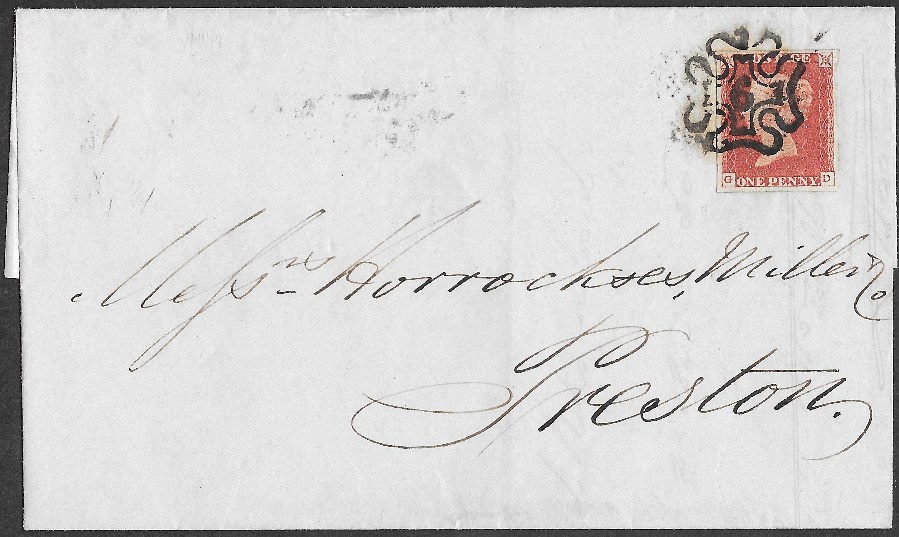 POSTAGE
G D
ONE PENNY
Messrs Horrockses, Miller & Co
Preston.